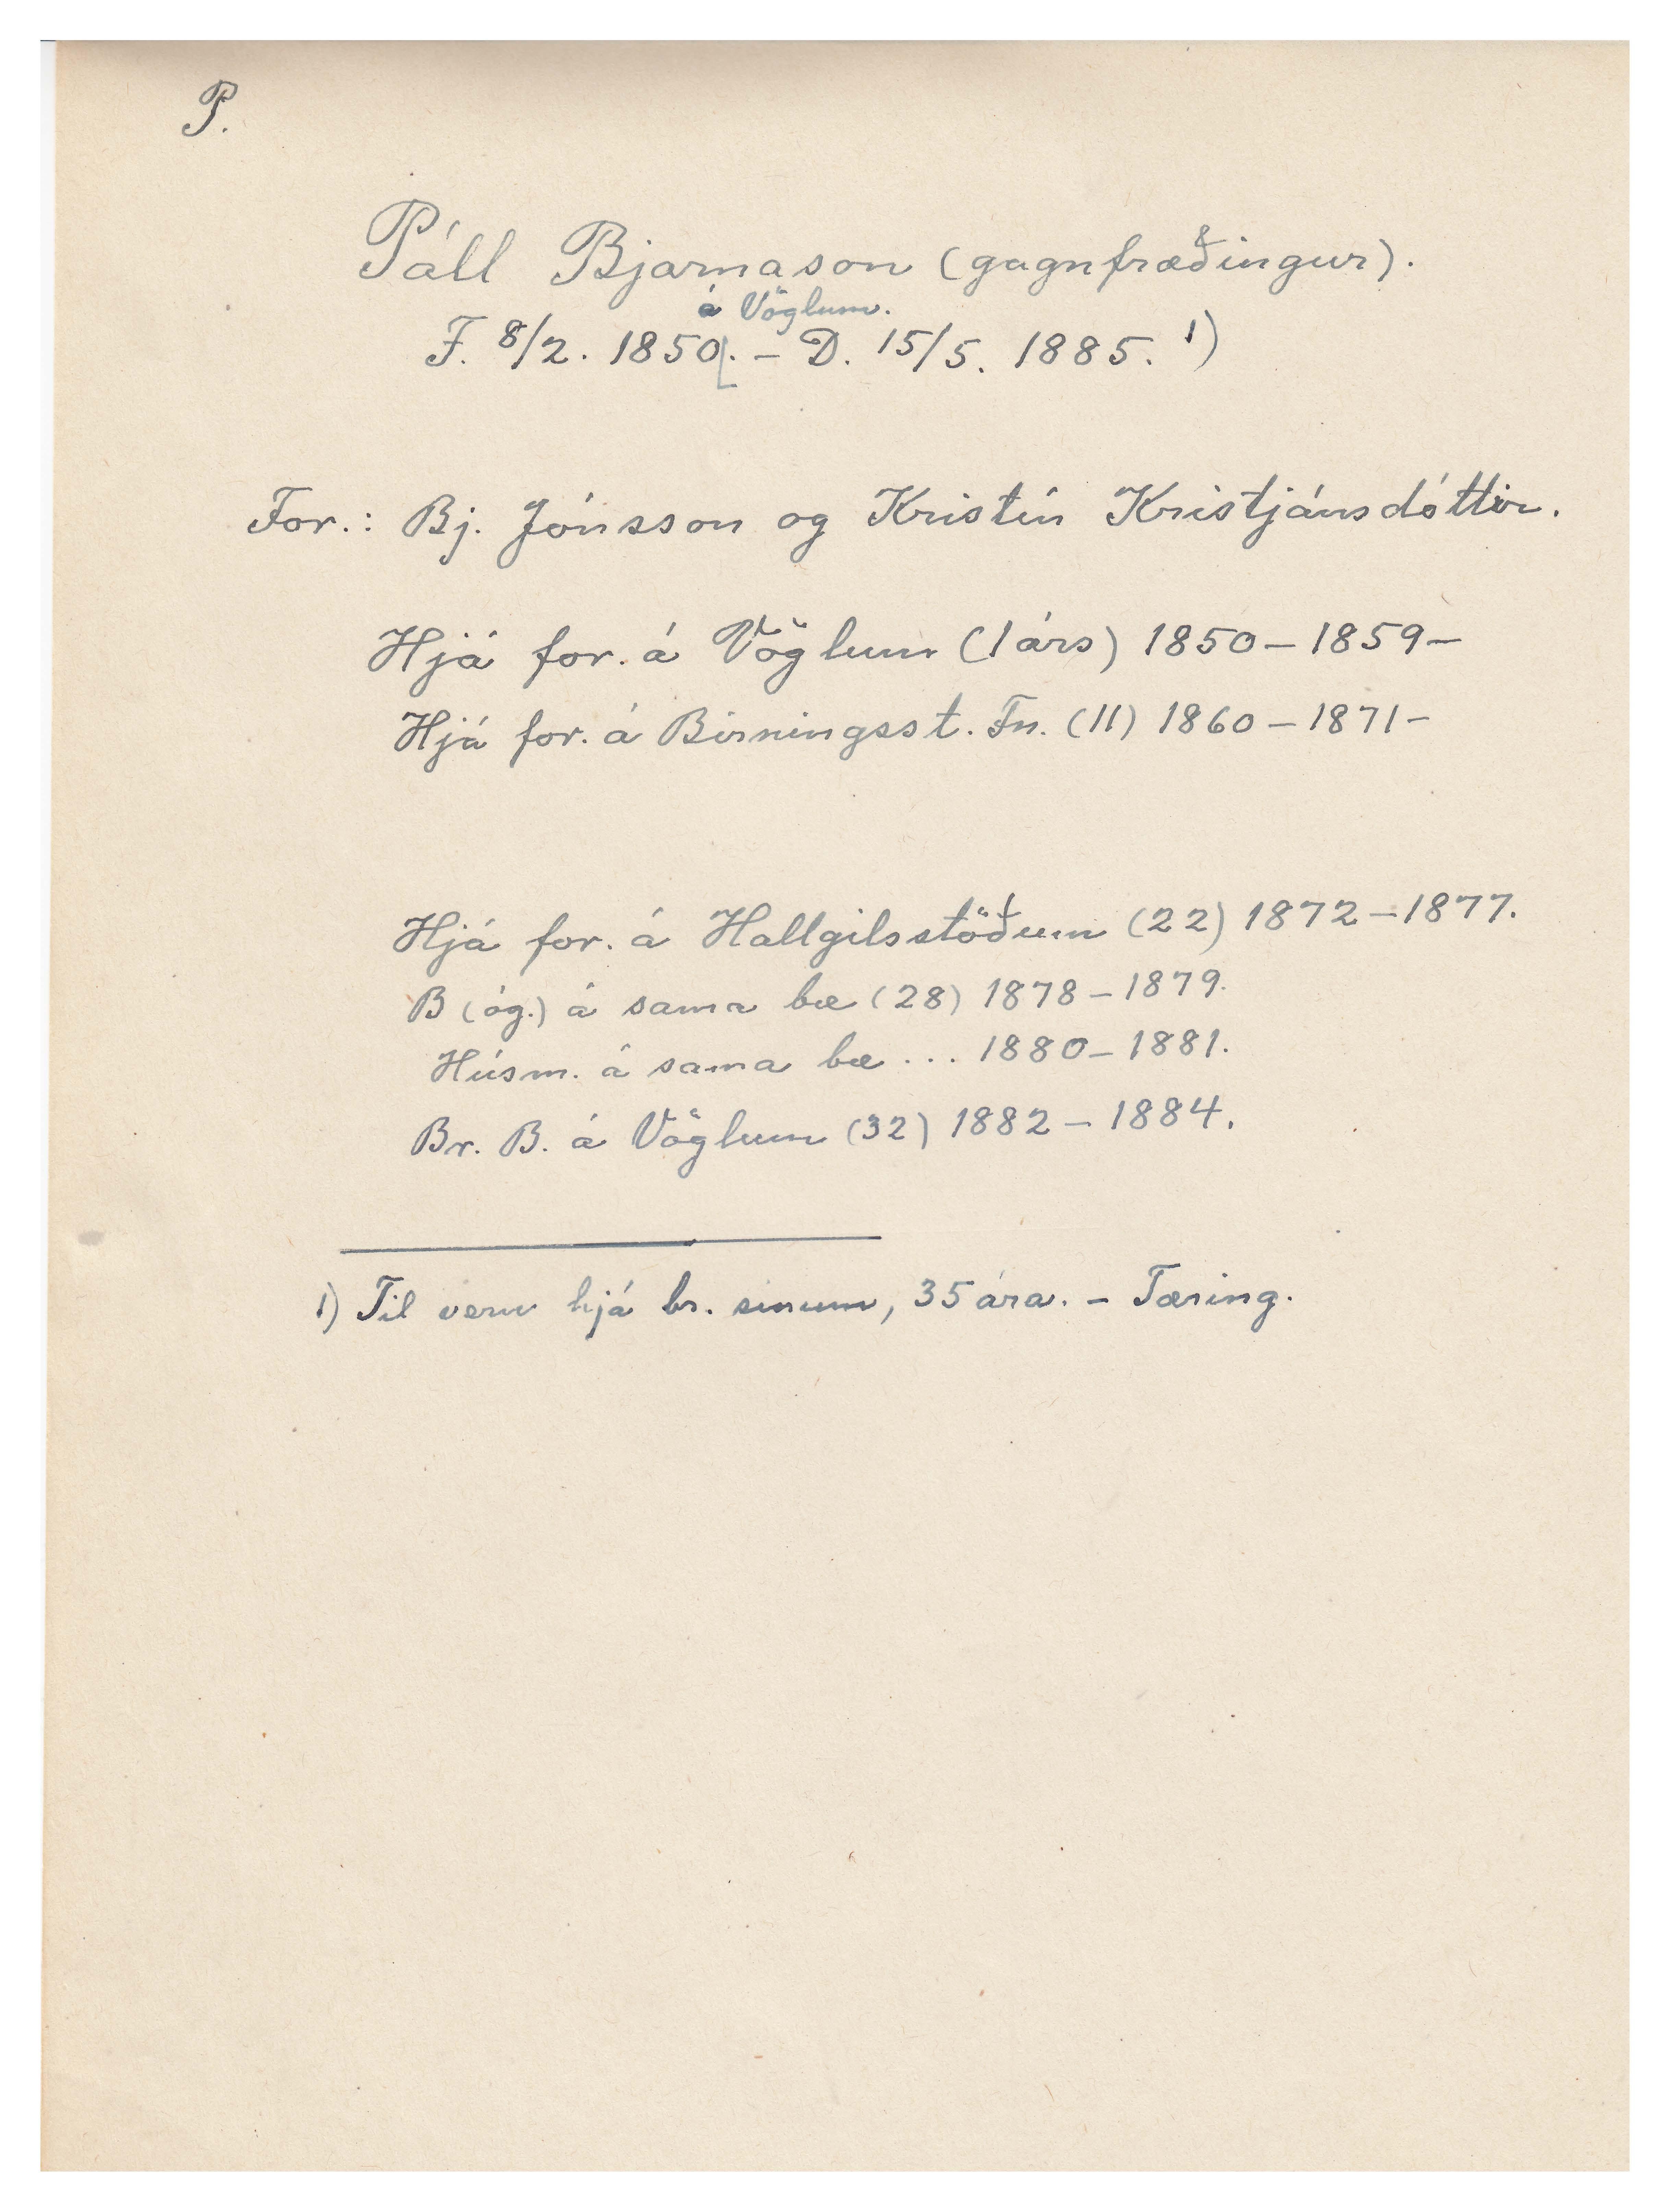 P.
Páll Bjarnason (gagnfræðingur).
á Vöglum.
F. 8/2. 1850. – D. 15/5. 1885. 1)
For.: Bj. Jónsson og Kristín Kristjánsdóttir.
Hjá for. á Vöglum (1 árs) 1850 – 1859 –
Hjá for. á Birningsst. Fn. (11) 1860 – 1871 –
Hjá for. á Hallgilsstöðum (22) 1872 – 1877.
B (óg.) á sama bæ (28) 1878 – 1879.
Húsm. á sama bæ ... 1880 – 1881.
Br. B. á Vöglum (32) 1882 – 1884.
1) Til veru hjá br. sínum, 35 ára. – Tæring.